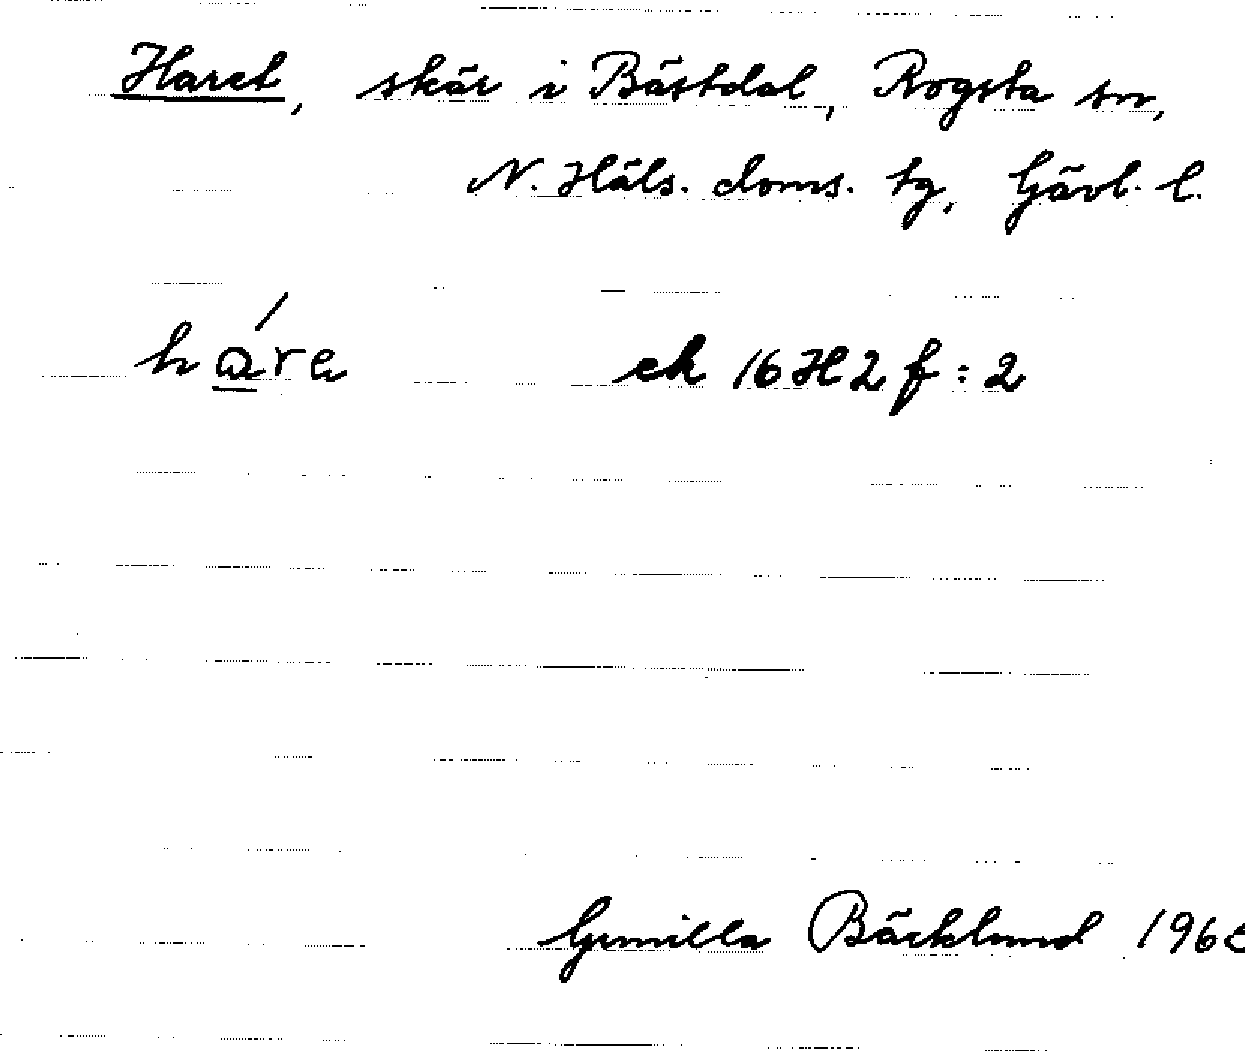 Haret, skär i Bästdal, Rogsta sn,
N. Häls. doms. tg, Gävl. l.
háre ek 16H2f:2
Gunilla Bäcklund